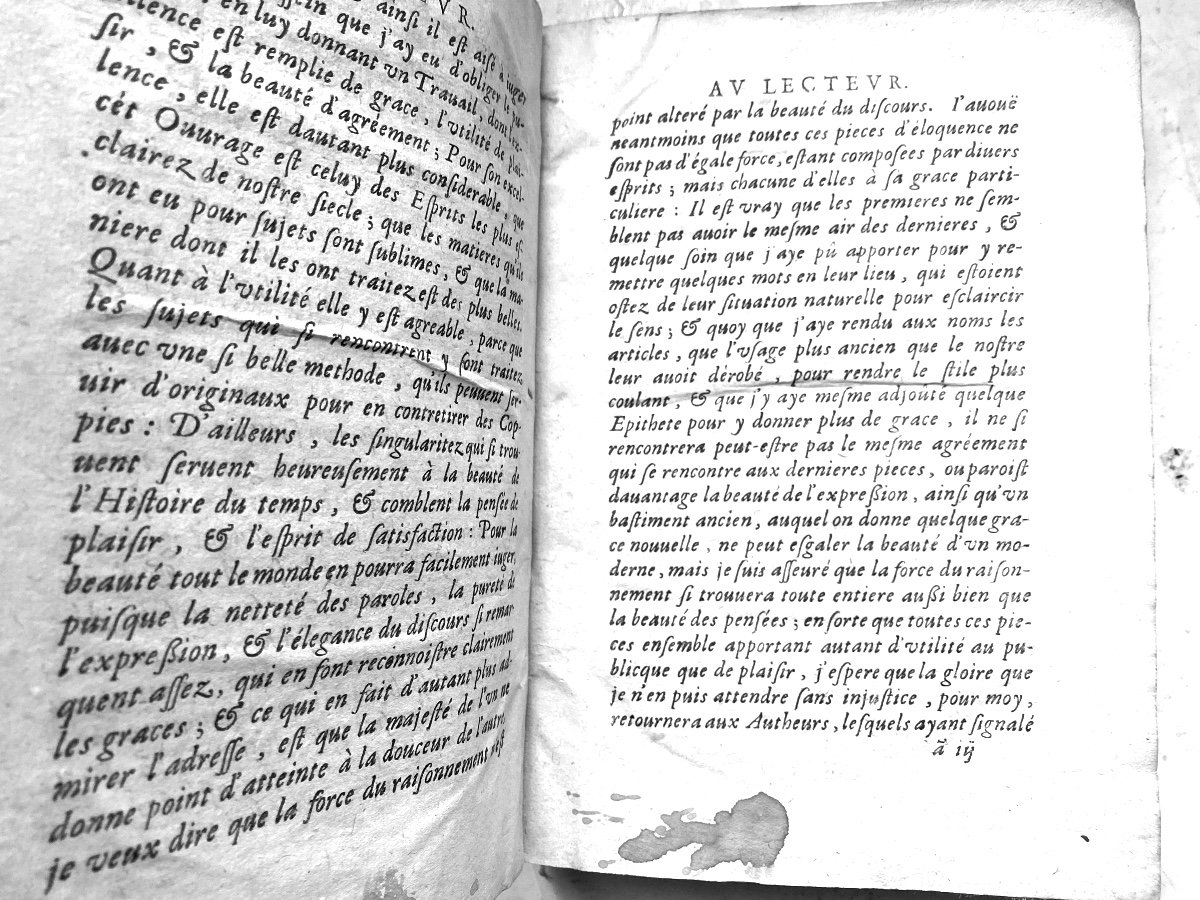 VR.
ainſi il eſt aiſé à iuger
que j'ay eu d'obliger le pu-
en luy donnant vn Trauail, dont l'ex-
eſt remplie de grace, l'vtilité de plai-
ſir, & la beauté d'agréement; Pour ſon excel-
lence, elle eſt dautant plus conſiderable, que
cét Ouurage eſt celuy des Eſprits les plus eſ-
clairez de noſtre ſiecle; que les matieres qu'ils
ont eu pour ſujets ſont ſublimes, & que la ma-
niere dont il les ont traitez eſt des plus belles.
Quant à l'vtilité elle y eſt agreable, parce que
les ſujets qui ſi rencontrent y ſont traitez
auec vne ſi belle methode, qu'ils peuuent ſer-
uir d'originaux pour en contretirer des Cop-
pies: D'ailleurs, les ſingularitez qui ſi trou-
uent ſeruent heureuſement à la beauté de
l'Hiſtoire du temps, & comblent la penſée de
plaiſir, & l'eſprit de ſatisfaction: Pour la
beauté tout le monde en pourra facilement iuger,
puiſque la netteté des paroles, la pureté de
l'expreßion, & l'élegance du diſcours ſi remar-
quent aſſez, qui en font reconnoiſtre clairement
les graces; & ce qui en fait d'autant plus ad-
mirer l'adreſſe, eſt que la majeſté de l'vn ne
donne point d'atteinte à la douceur de l'autre,
je veux dire que la force du raiſonnement n'eſt
AV LECTEVR.
point alteré par la beauté du diſcours. I'auouë
neantmoins que toutes ces pieces d'éloquence ne
ſont pas d'égale force, eſtant compoſees par diuers
eſprits; mais chacune d'elles à ſa grace parti-
culiere: Il eſt vray que les premieres ne ſem-
blent pas auoir le meſme air des dernieres, &
quelque ſoin que j'aye pû apporter pour y re-
mettre quelques mots en leur lieu, qui eſtoient
oſtez de leur ſituation naturelle pour eſclaircir
le ſens; & quoy que j'aye rendu aux noms les
articles, que l'vſage plus ancien que le noſtre
leur auoit dérobé, pour rendre le ſtile plus
coulant, & que j'y aye meſme adjoûté quelque
Epithete pour y donner plus de grace, il ne ſi
rencontrera peut-eſtre pas le meſme agréement
qui ſe rencontre aux dernieres pieces, ou paroiſt
dauantage la beauté de l'expreßion, ainſi qu'vn
baſtiment ancien, auquel on donne quelque gra-
ce nouuelle, ne peut eſgaler la beauté d'vn mo-
derne, mais je ſuis aſſeuré que la force du raiſon-
nement ſi trouuera toute entiere außi bien que
la beauté des penſées; en ſorte que toutes ces pie-
ces enſemble apportant autant d'vtilité au pu-
blicque que de plaiſir, j'eſpere que la gloire que
je n'en puis attendre ſans injuſtice, pour moy,
retournera aux Autheurs, leſquels ayant ſignalé
ã iij